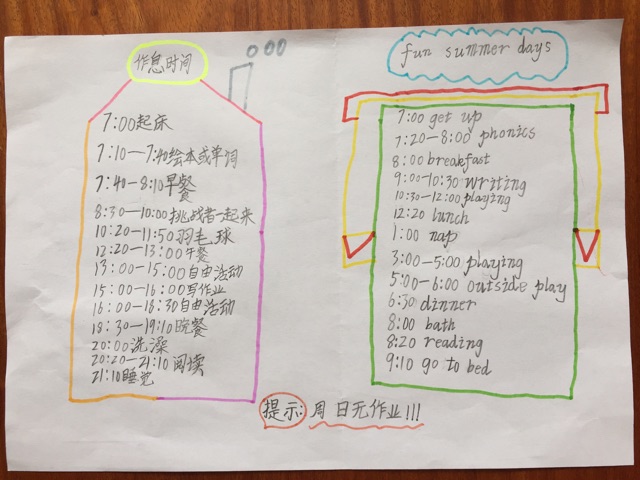 作息时间
7:00起床
7:10—7:40绘本或单词
7:40—8:10早餐
8:30—10:00挑战者一起来
10:20—11:50羽毛球
12:20—13:00午餐
13:00—15:00自由活动
15:00—16:00写作业
16:00—18:30自由活动
18:30—19:10晚餐
20:00洗澡
20:20—21:10阅读
21:10睡觉
fun summer days
7:00 get up
7:20-8:00 phonics
8:00 breakfast
9:00-10:30 writing
10:30-12:00 playing
12:20 lunch
1:00 nap
3:00-5:00 playing
5:00-6:00 outside play
6:30 dinner
8:00 bath
8:20 reading
9:10 go to bed
提示:周日无作业!!!